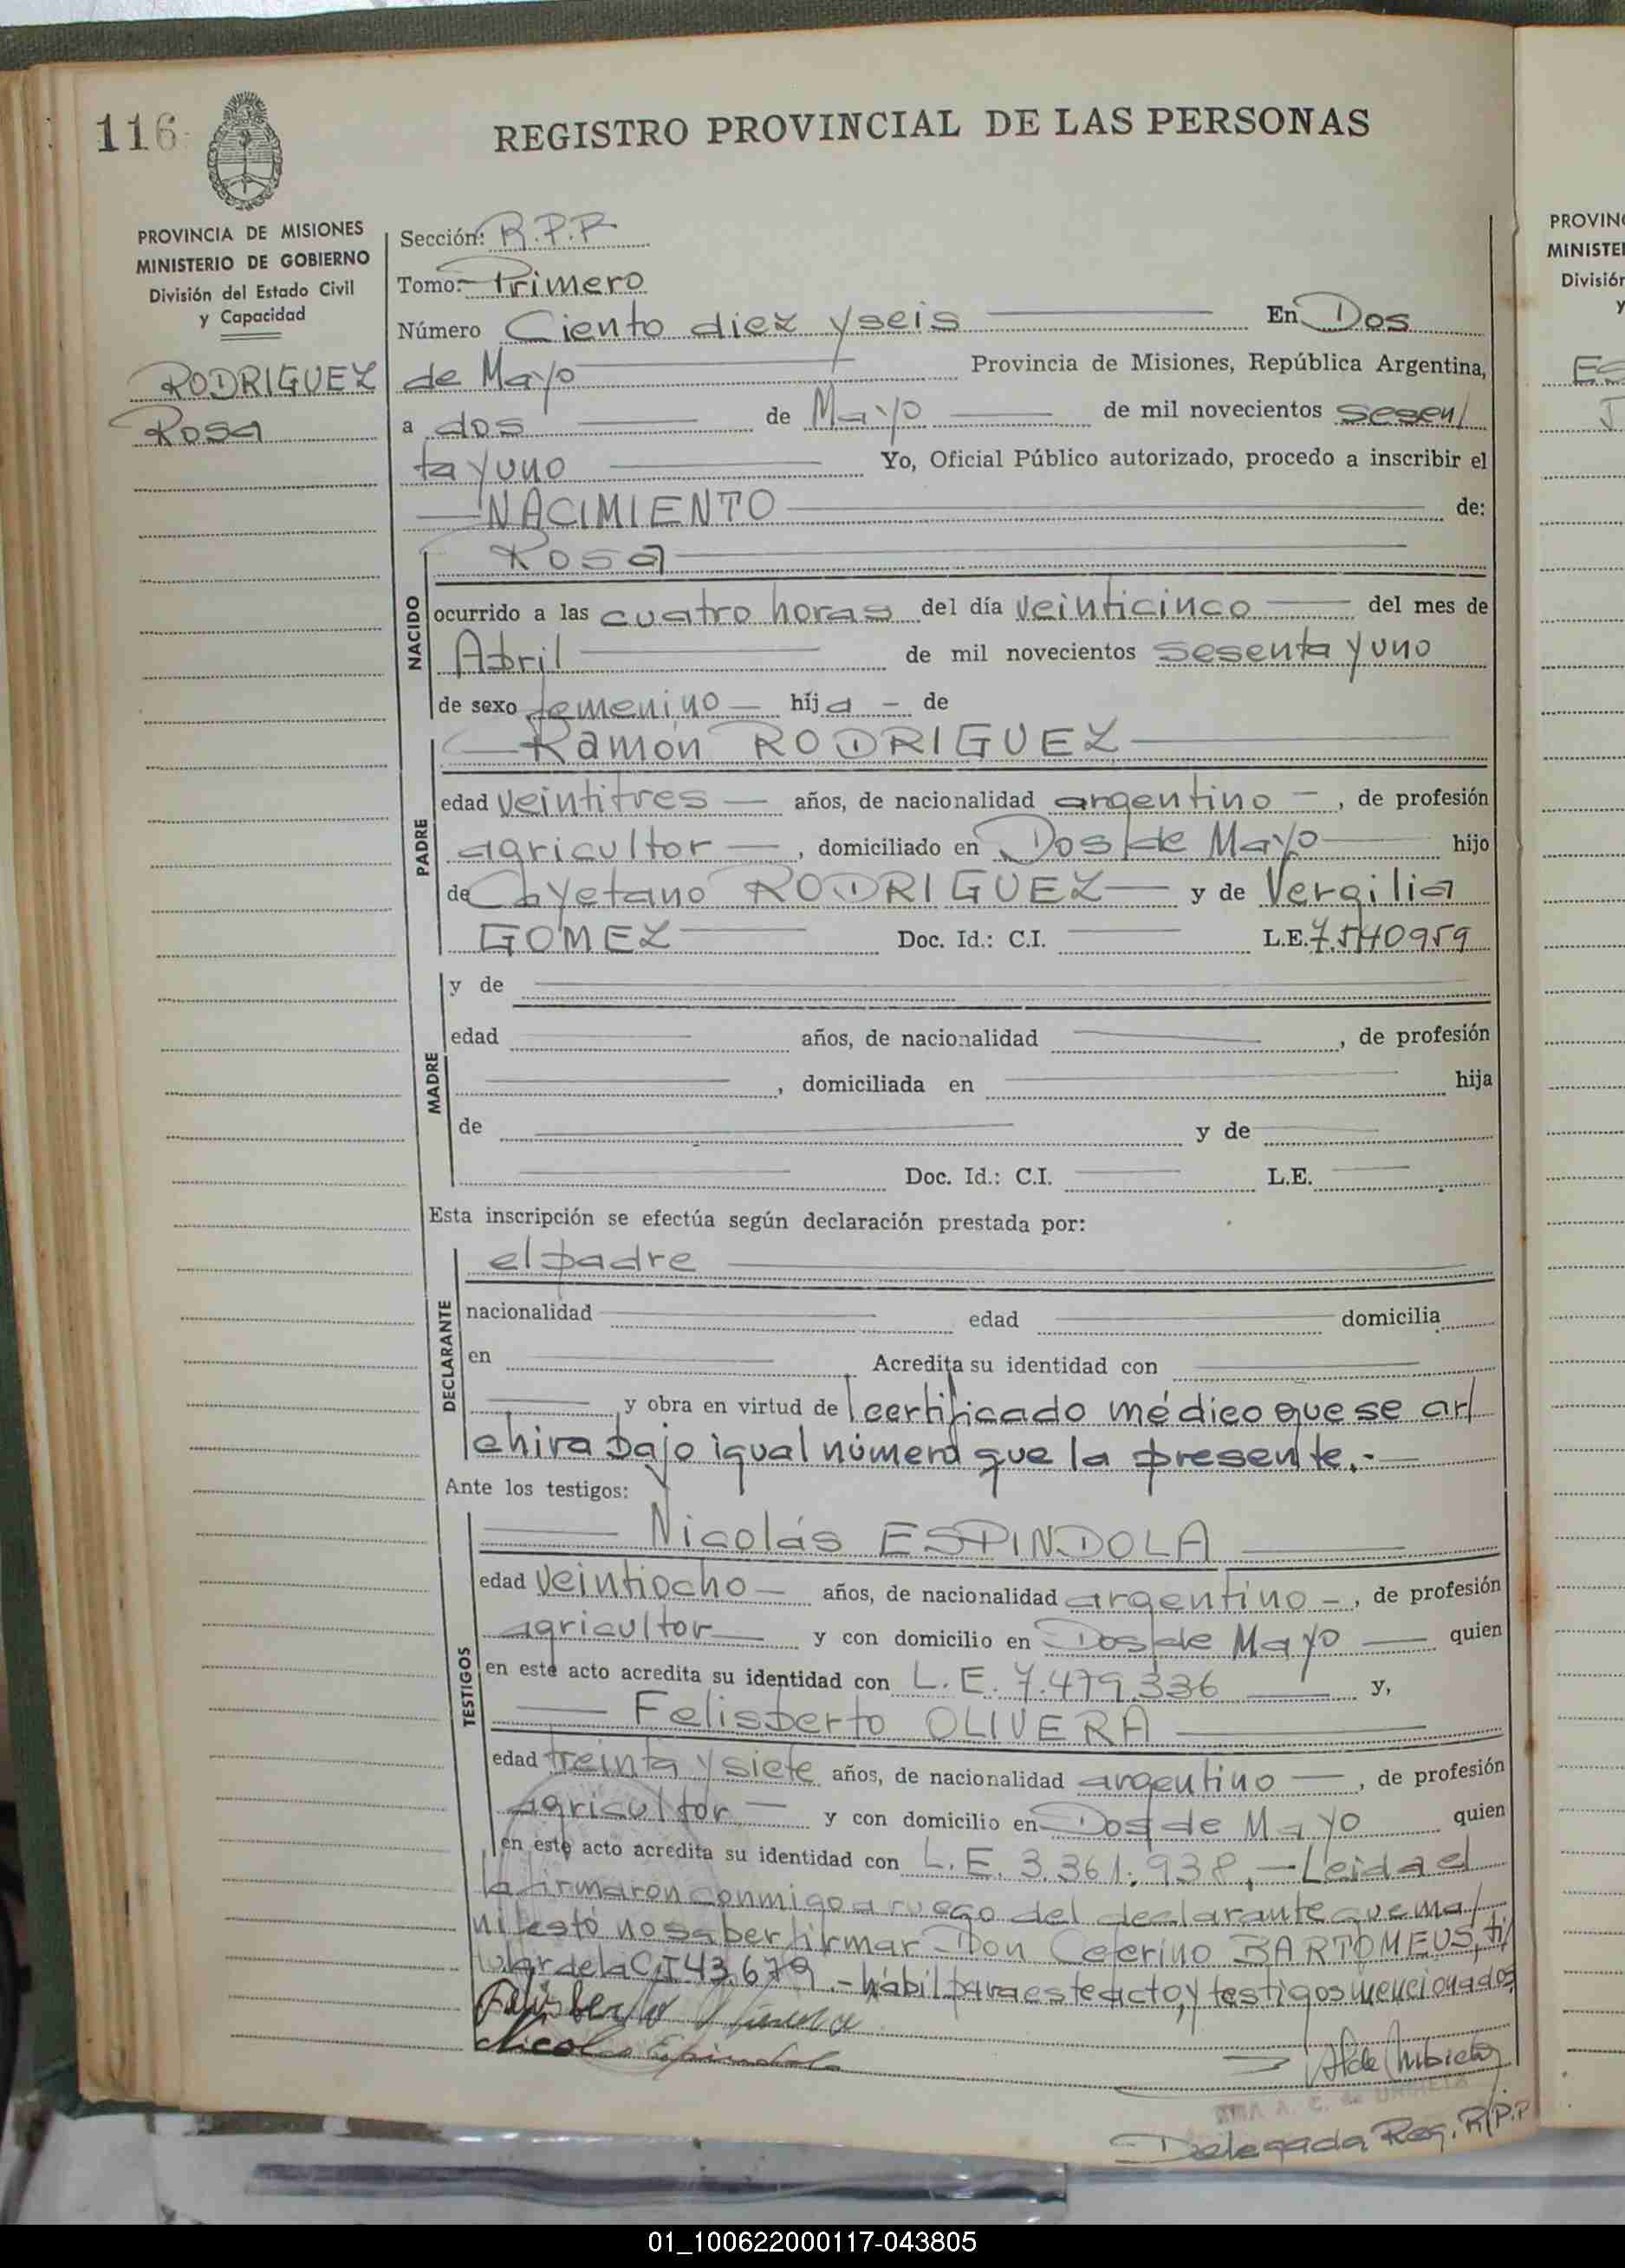 116
REGISTRO PROVINCIAL DE LAS PERSONAS
PROVINCIA DE MISIONES
MINISTERIO DE GOBIERNO
División del Estado Civil
y Capacidad
RODRIGUEZ
Rosa
Sección: R.P.P.
Tomo: Primero
Número Ciento diez y seis En Dos
de Mayo Provincia de Misiones, República Argentina,
a dos de Mayo de mil novecientos sesen/
ta y uno Yo, Oficial Público autorizado, procedo a inscribir el
NACIMIENTO de:
NACIDO
Rosa
ocurrido a las cuatro horas del día veinticinco del mes de
Abril de mil novecientos sesenta y uno
de sexo femenino hija de
PADRE
Ramón RODRIGUEZ
edad veintitres años, de nacionalidad argentino, de profesión
agricultor, domiciliado en Dos de Mayo hijo
de Cayetano RODRIGUEZ y de Vergilia
GOMEZ Doc. Id.: C.I. L.E. 7.540959
MADRE
y de
edad años, de nacionalidad , de profesión
, domiciliada en hija
de y de
Doc. Id.: C.I. L.E.
Esta inscripción se efectúa según declaración prestada por:
DECLARANTE
el padre
nacionalidad edad domicilia
en Acredita su identidad con
y obra en virtud de l certificado médico que se ar/
chiva bajo igual número que la presente.-
Ante los testigos:
TESTIGOS
Nicolás ESPINDOLA
edad veintiocho años, de nacionalidad argentino, de profesión
agricultor y con domicilio en Dos de Mayo quien
en este acto acredita su identidad con L.E. 7.479.336 y,
Felisberto OLIVERA
edad treinta y siete años, de nacionalidad argentino, de profesión
agricultor y con domicilio en Dos de Mayo quien
en este acto acredita su identidad con L.E. 3.361.938,- Leida el
la firmaron conmigo a ruego del declarante que ma/
nifestó no saber firmar Don Ceferino BARTOMEUS, ti/
tular de la C.I 43.679.- hábil para este acto, y testigos mencionados
Felisberto Olivera
Nicolas Espindola
Delegada Reg. R.P.P
PROVIN
MINISTE
Divisió
y
ES
J
01_100622000117-043805